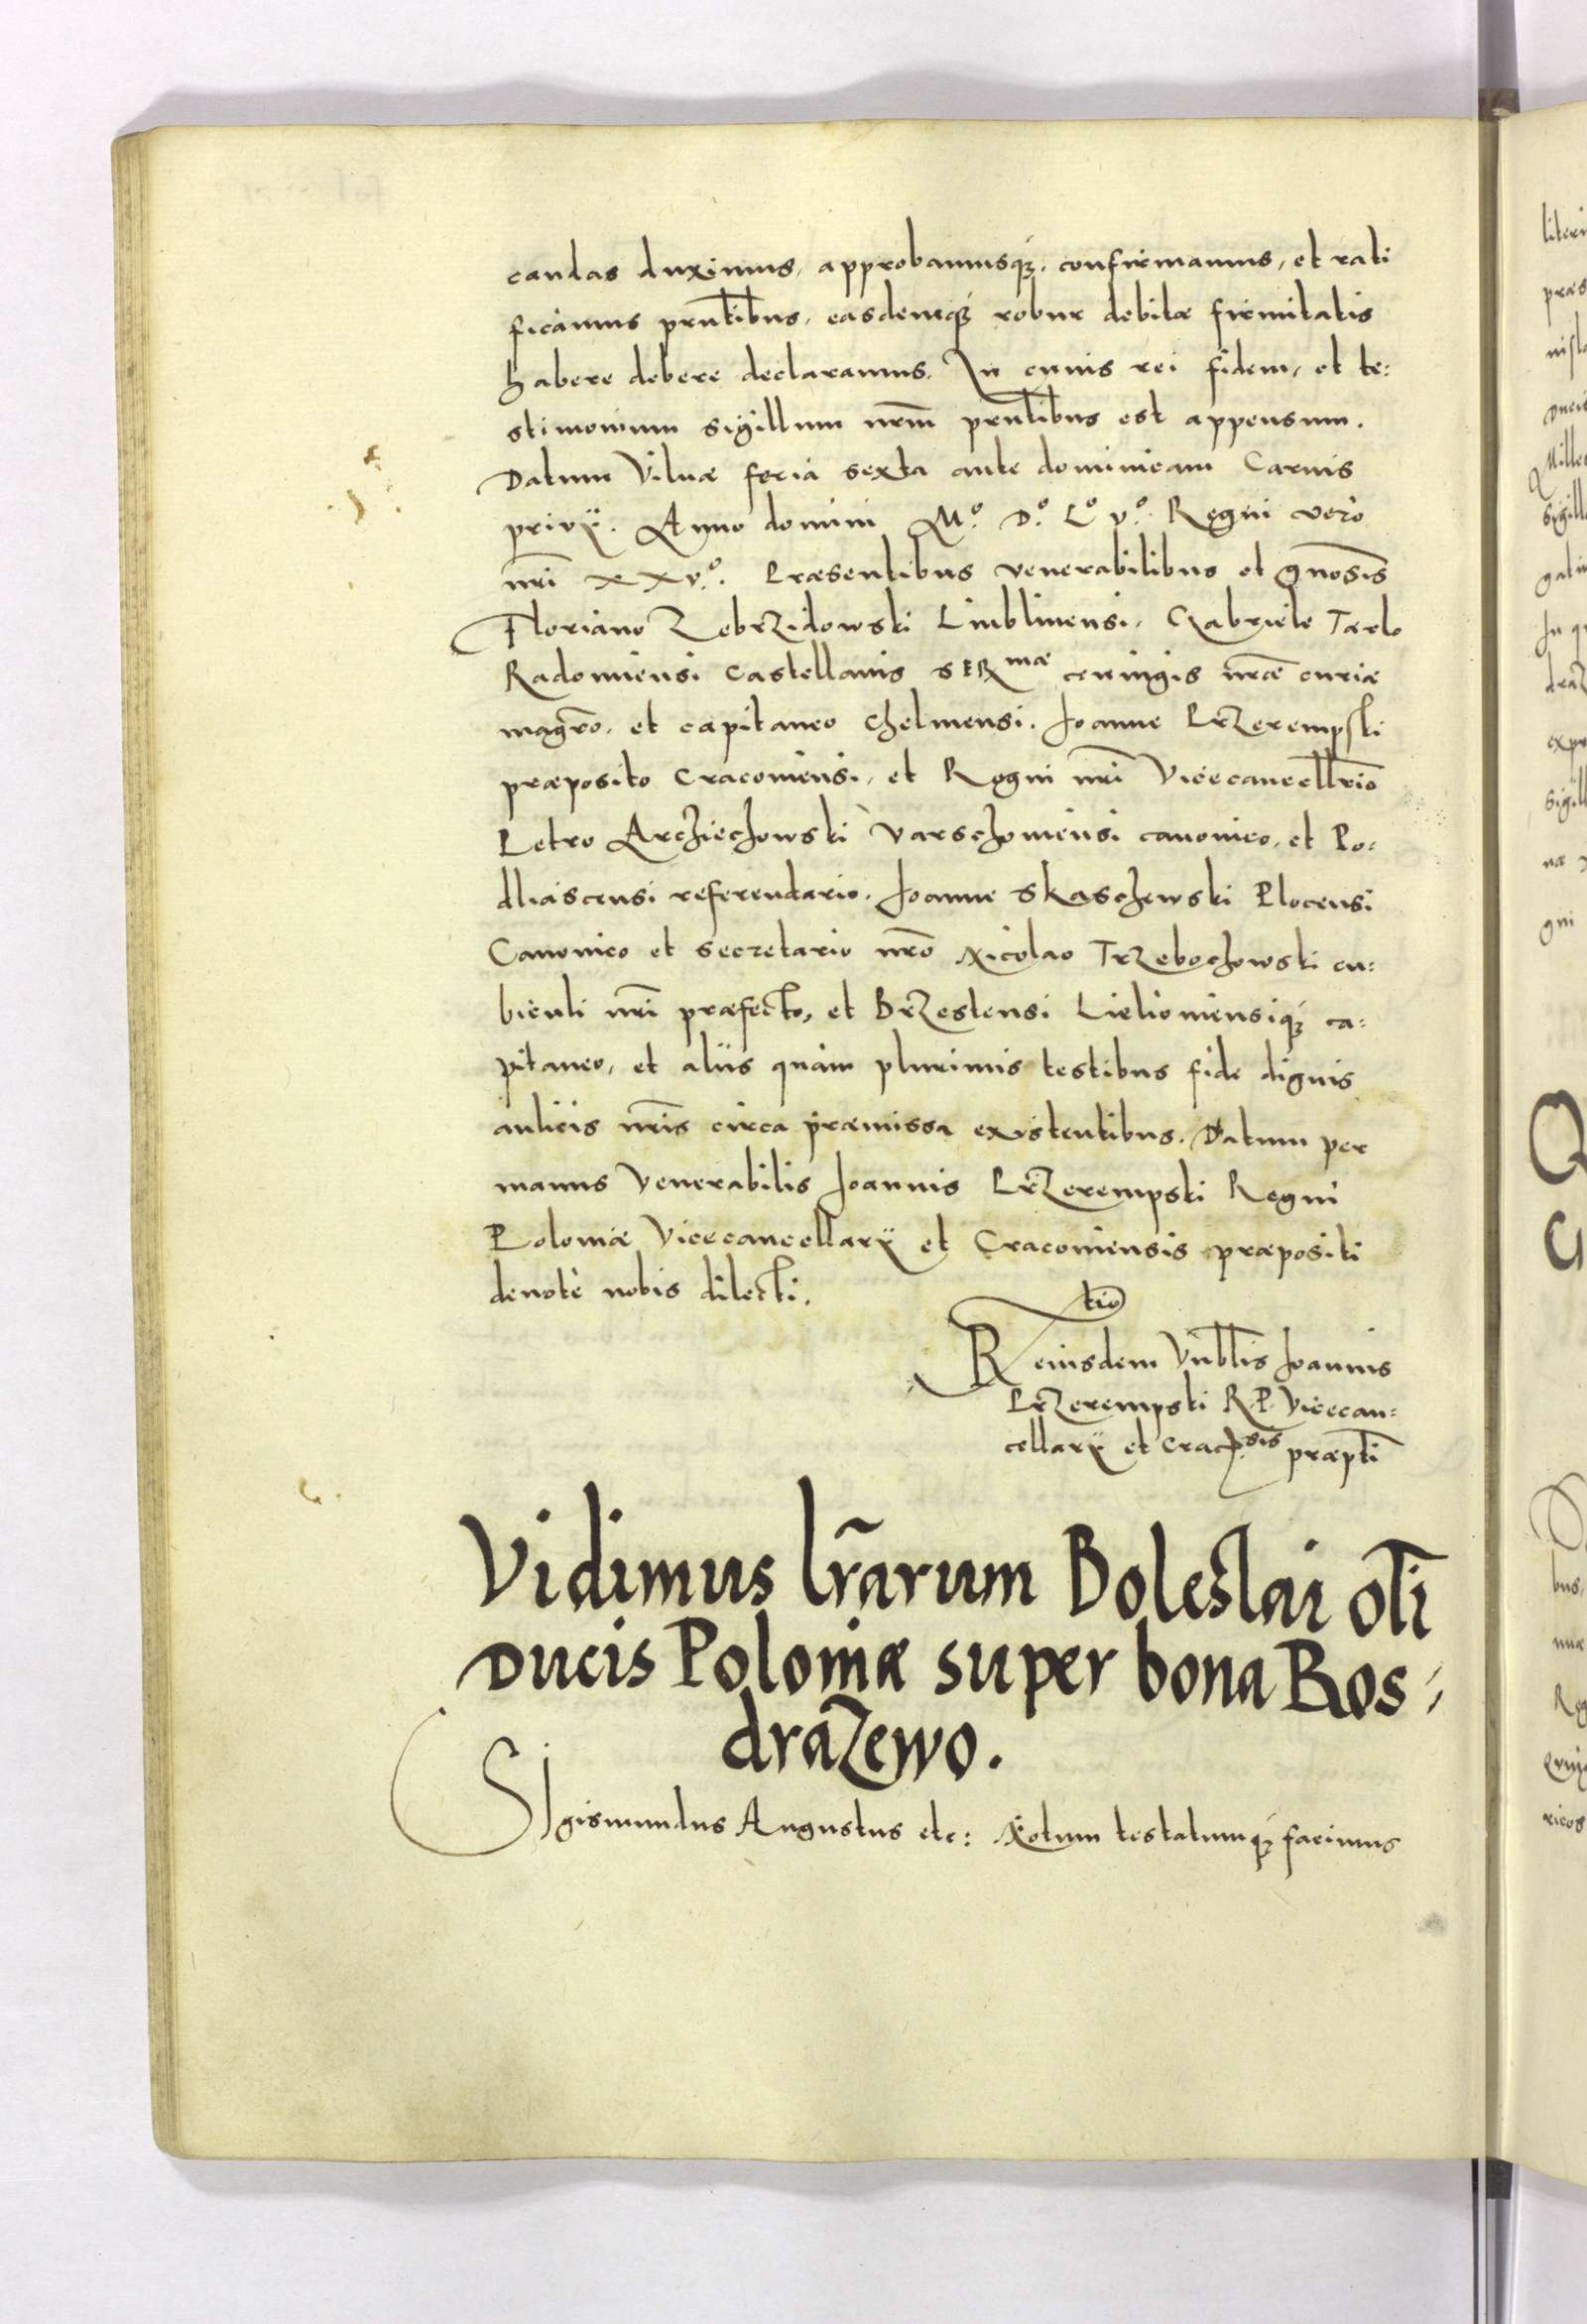 candas duximus, approbamusq́ꝫ, confirmamus, et rati
ficamus prñtibus, easdemq́ꝫ robur debitæ firmitatis
habere debere declaramus. In cuius rei fidem, et te:
stimonium sigillum nr̃m prñtibus est appensum.
Datum Vilnæ feria sexta ante dominicam Carnis
privÿ. Anno domini Mº. Dº. Lº vº. Regni verò
nr̃i xxvº. Præsentibus venerabilibus et gñosis
Floriano Zebrzidowski Lublinensi, Gabriele Tarlo
Radomiensi Castellanis SERmæ coniugis nr̃æ curiæ
magr̃o, et capitaneo Chelmensi. Joanne Przerempski
præposito Cracoviensi, et Regni nr̃i Vicecancellr̃io
Petro Archiechowski Varschoviensi canonico, et Po:
dliascensi referendario. Joanne Skaschewski Plocensi
Canonico et secretario nr̃o Nicolao Trzebochowski cu:
biculi nr̃i præfecto, et Brzestensi Lieloviensiq́ꝫ ca:
pitaneo, et aliis quàm plurimis testibus fide dignis
aulicis nr̃is circa præmissa existentibus. Datum per
manus Venerabilis Joannis Przerempski Regni
Poloniæ Vicecancellarÿ et Cracoviensis præpositi
devotè nobis dilecti.
Rtio eiusdem Vnblis Joannis
Przerempski R. P. Vicecan:
cellarÿ et Cracosis præpti
Vidimus lr̃arum Boleslai oli
Ducis Poloniæ super bona Ros:
drazewo.
SIgismundus Augustus etc: Notum testatumq́ꝫ facimus